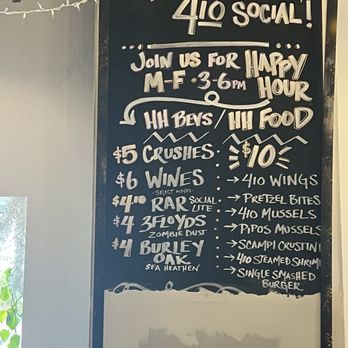 410 SOCIAL!
JOIN US FOR HAPPY HOUR
M-F • 3-6PM
HH BEVS / HH FOOD
$5 CRUSHES
$6 WINES
- SELECT WINES -
$4.10 RAR SOCIAL LITE
$4 3FLOYDS
ZOMBIE DUST
$4 BURLEY OAK
SEA HEATHEN
$10
→ 410 WINGS
→ PRETZEL BITES
→ 410 MUSSELS
→ PIPOS MUSSELS
→ SCAMPI CROSTINI
→ 410 STEAMED SHRIM
→ SINGLE SMASHED BURGER